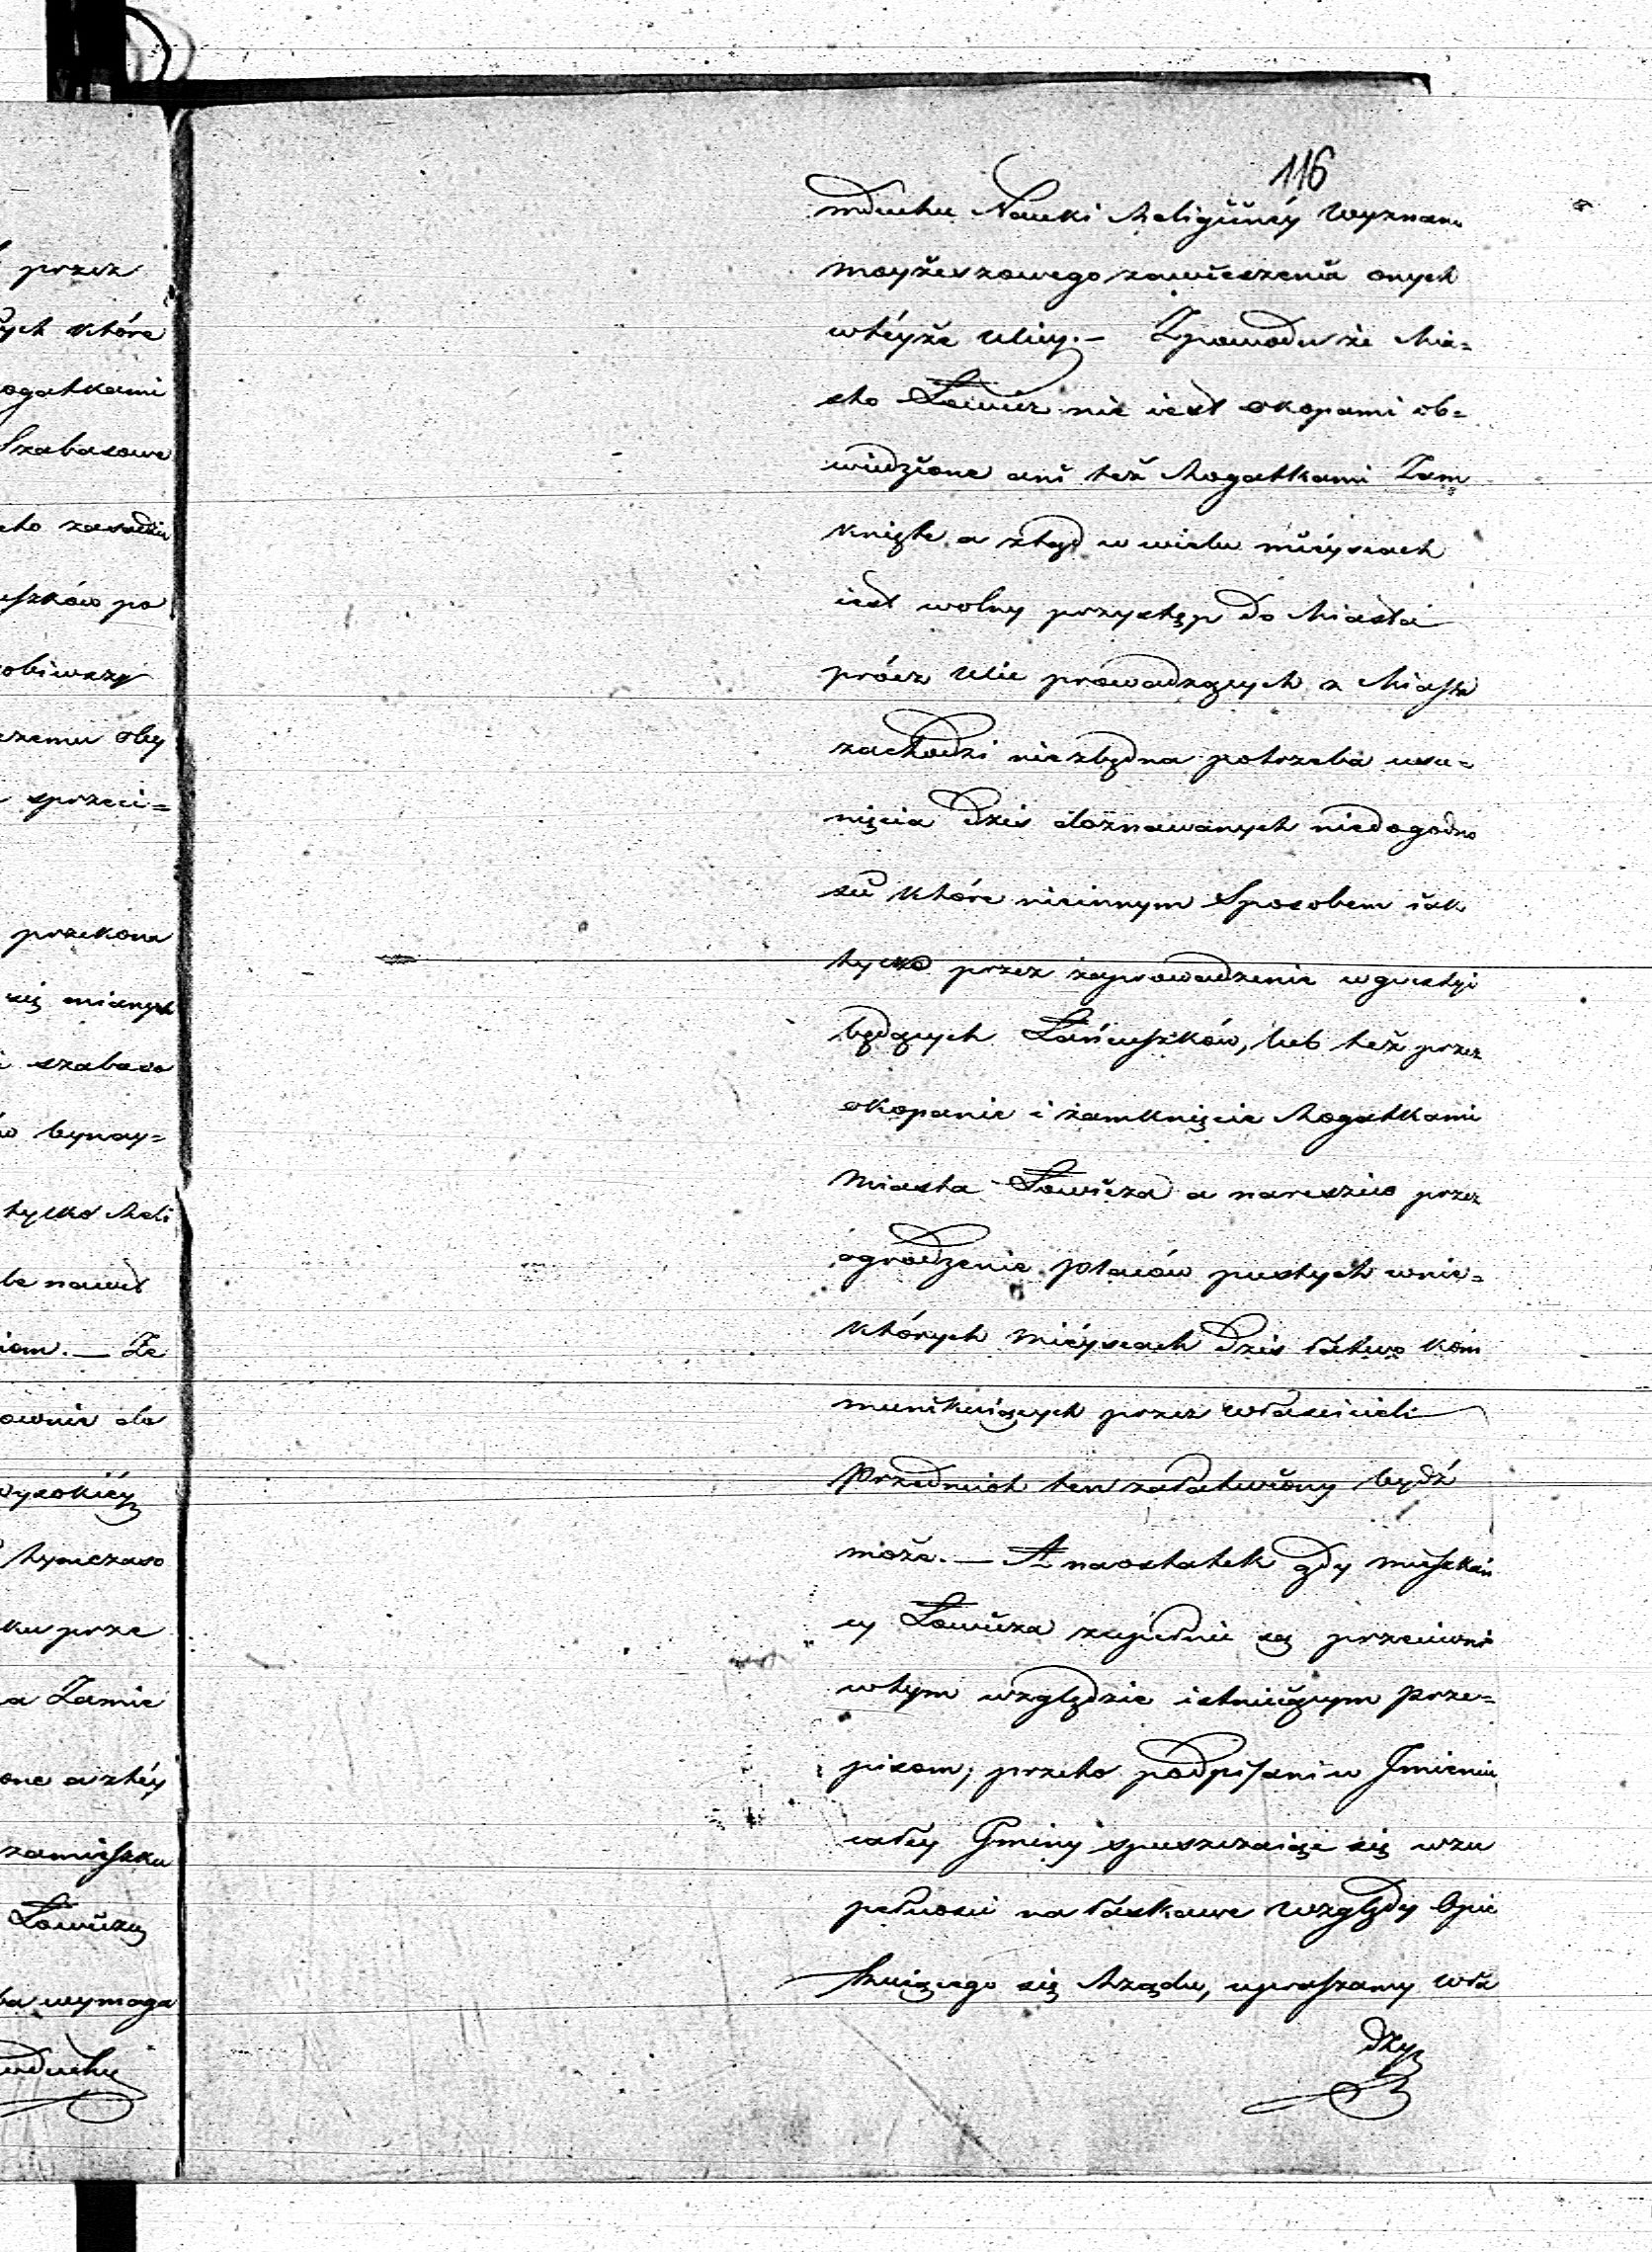 116
wduchu Nauki Religiinéy Wyznan
mayżeszowego zawieszenia onych
wtéyże ulicy.— Zpowodu że Mia=
sto Łowicz nie iest okopami ob=
wiedzione ani też Rogatkami Zam
knięte a ztąd w wielu mieyscach
iest wolny przystęp do Miasta
prócz Ulic prowadzących z Miasta
zachodzi niezbędna potrzeba usu=
nięcia dziś doznawanych niedogodno
sci które nieinnym Sposobem iak
tylko przez zaprowadzenie wquestyi
będących Łańcuszków, lub też przez
okopanie i zamknięcie Rogatkami
Miasta Łowicza a nareszcie przez
ogrodzenie placów pustych wnie=
których mieyscach dziś łatwo kom
munikuiących przez właścicieli
Przedmiot ten załatwiony bydź
może.— A naostatek gdy mieszkań
cy Łowicza zupełnie są przeciwni
wtym względzie istnieiącym prze=
pisom; przeto podpisani w Imieniu
całey Gminy spuszczaiąc się wzu
pełności na łaskawe względy Opie
kuiącego się Rządu, upraszamy Wła
dzy
przez
ych które
ogatkami
Szabasowe
eto zasadzie
uszków po
obiwszy
czemu oby
sprzeci=
przekona
się mianych
szabaso
bynay=
tylko Reli
be nawet
iom.— Ze
ownie do
wysokiéy
tymczaso
ku prze
a Zamie
one a ztéy
zamieszku
Łowiczu
ba wymaga
wduchu